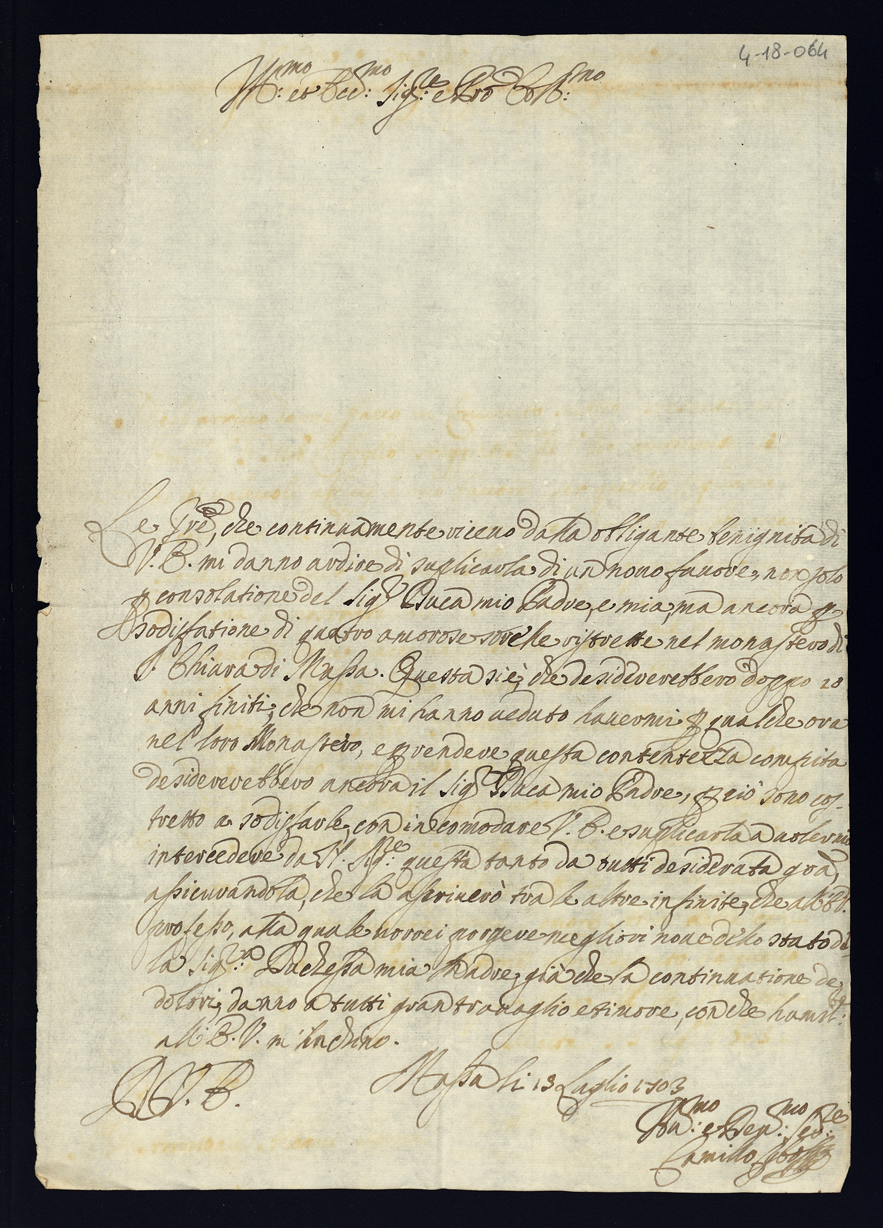 4-18-064
Ill.mo et Ecc.mo Sig.re e Pro[n] Col.mo
Le gre, che continuamente riceuo dalla obligante benignità di
V. E. mi danno ardire di suplicarla di un nouo fauore, non solo
p consolatione del Sig.r Duca mio Padre, e mia, ma ancora p
sodisfatione di quatro amorose sorelle ristrette nel monastero di
S. Chiara di Massa. Questa si è, che desidererebbero doppo 20
anni finiti, che non mi hanno ueduto hauermi p qualche ora
nel loro Monastero, e p rendere questa contentezza compita
desidererebbero ancora il Sig.r Duca mio Padre, p ciò sono cos-
tretto a sodisfarle, con incomodare V. E. e suplicarla a uolermi
intercedere da N. Sig.re questa tanto da tutti desiderata gra,
assicurandola, che la ascriuerò tra le altre infinite, che all'E.V.
professo, alla quale uorrei porgere megliori noue dello stato del-
la Sig.ra Duchessa mia Madre, già che la continuatione de
dolori, danno a tutti gran trauaglio e timore, con che humil.te
all'E. V. m'inchino.
D. V. E.
Massa li 13 Luglio 1703
Hu.mo e Deu.mo Ser.re
Camillo